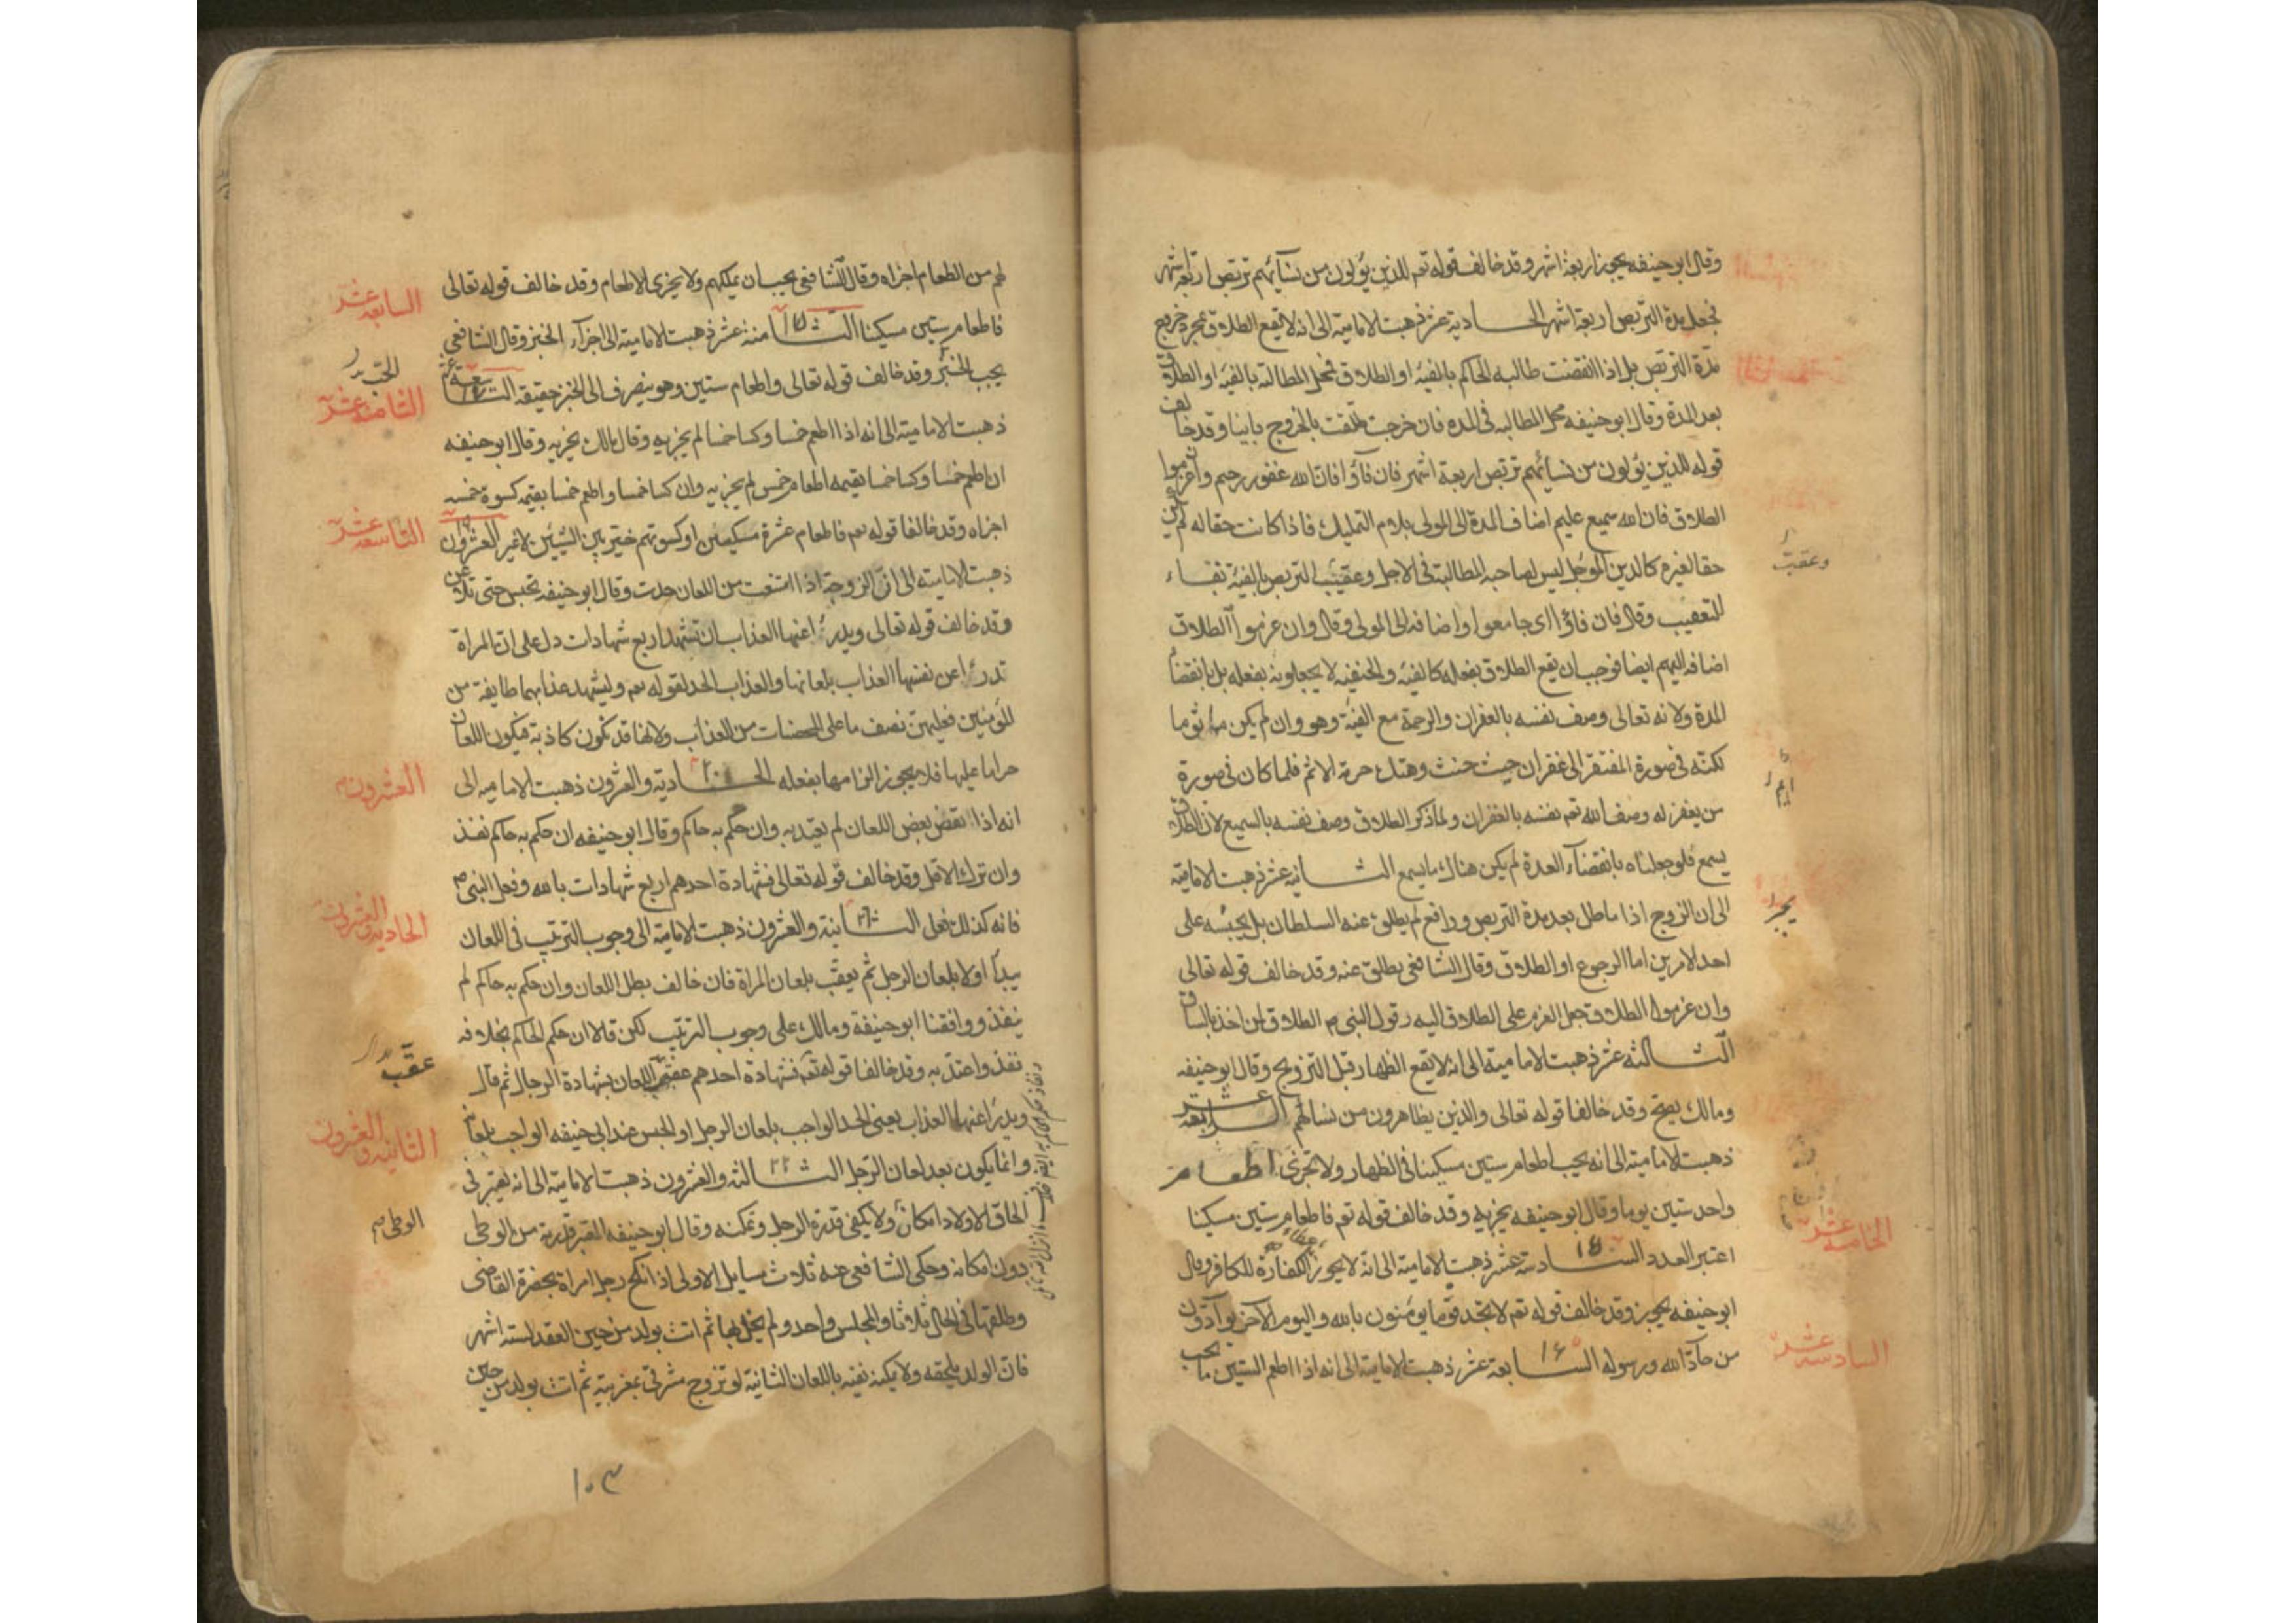 وقال ابو حنيفه يجوز اربعة اشهر وقد خالف قوله تعم للذين يؤلون من نسآئهم تربص اربعة اشهر
فجعل مدة التربص اربعة اشهر الحادية عشر ذهبت الامامية الى انه لا يقع الطلاق بمجرد خروج
مدة التربص بل اذا انقضت طالبه الحاكم بالفئة او الطلاق فمحل المطالبة بالفئة او الطلاق
بعد المدة وقال ابو حنيفه محل المطالبه فى المده فان خرجت طلقت بالخروج باينا وقد خالف
قوله للذين يؤلون من نسائهم تربص اربعة اشهر فان فآؤا فان الله غفور رحيم وان عزموا
الطلاق فان الله سميع عليم اضاف المدة الى المولى بلام التمليك فاذا كانت حقا له لم يكن
حقا لغيره كالدين المؤجل ليس لصاحبه المطالبة فى الاجل وعقيب التربص بالفئة بفاء
وعقب
للتعقيب وقال فان فاؤا اى جامعوا واضافه الى المولى وقال وان عزموا الطلاق
اضافه اليهم ايضا فوجب ان يقع الطلاق بفعله كالفئة والحنفية لا يجعلونه بفعله بل بانقضاء
المدة ولانه تعالى وصف نفسه بالغفران والرحمة مع الفئة وهو وان لم يكن مأثوما
لكنه فى صورة المفتقر الى غفران حيث حنث وهتك حرمة الاثم فلما كان فى صورة
من يغفر له وصف الله تعم نفسه بالغفران ولما ذكر الطلاق وصف نفسه بالسميع لان الطلاق
يسمع فلو جعلناه بانقضآء العدة لم يكن هناك ما يسمع الثانية عشر ذهبت الامامية
الى ان الزوج اذا ماطل بعد مدة التربص ورافع لم يطلق عنه السلطان بل يحبسه على
يجبر
احد الامرين اما الرجوع او الطلاق وقال الشافعى يطلق عنه وقد خالف قوله تعالى
وان عزموا الطلاق جعل العزم على الطلاق اليه وقول النبى ص الطلاق لمن اخذ بالساق
الثالثة عشر ذهبت الامامية الى انه لا يقع الظهار قبل التزويج وقال ابو حنيفه
ومالك يصح وقد خالفا قوله تعالى والذين يظاهرون من نسائهم الرابعة عشر
ذهبت الامامية الى انه يجب اطعام ستين مسكينا فى الظهار ولا تجزى اطعام
واحد ستين يوما وقال ابو حنيفه يجزيه وقد خالف قوله تعم فاطعام ستين مسكينا
الخامسة عشر
اعتبر العدد السادسة عشر ١٥ ذهبت الامامية الى انه لا يجوز الكفارة للكافر وقال
ابو حنيفه يجوز وقد خالف قوله تعم لا تجد قوما يؤمنون بالله واليوم الآخر يوآدون
السادسة عشر
من حآد الله ورسوله السابعة عشر ١٦ ذهبت الامامية الى انه اذا اطعم الستين ما يجب
لهم من الطعام اجزاه وقال الشافعى يجب ان يملكهم ولا يجزى الاطعام وقد خالف قوله تعالى
السابعة عشر
فاطعام ستين مسكينا الثامنة عشر ذهبت الامامية الى اجزآء الخبز وقال الشافعى
يجب الحب وقد خالف قوله تعالى واطعام ستين وهو ينصرف الى الخبز حقيقة التاسعة عشر
الحب
الثامنة عشر
ذهبت الامامية الى انه اذا اطعم خمسا وكسا خمسا لم يجزيه وقال مالك يجزيه وقال ابو حنيفه
ان اطعم خمسا وكسا خمسا بقيمه اطعام خمس لم يجزيه وان كسا خمسا واطعم خمسا بقيمه كسوة خمسه
اجزاه وقد خالفا قوله تعم فاطعام عشرة مساكين او كسوتهم خير بين الشيئين لا غير العشرون
التاسعة عشر
ذهبت الامامية الى ان الزوجة اذا امتنعت من اللعان حدت وقال ابو حنيفه تحبس حتى تلاعن
وقد خالف قوله تعالى ويدرؤا عنها العذاب ان تشهد اربع شهادات دل على ان المراة
تدرؤا عن نفسها العذاب بلعانها والعذاب الحد لقوله تعم وليشهد عذابهما طايفة من
المؤمنين فعليهن نصف ما على المحصنات من العذاب ولانها قد تكون كاذبة فيكون اللعان
حراما عليها فلا يجوز الزامها بفعله الحادية ٢٠ والعشرون ذهبت الامامية الى
العشرون
انه اذا نقض بعض اللعان لم يعتد به وان حكم به حاكم وقال ابو حنيفه ان حكم به حاكم نفذ
وان ترك الاقل وقد خالف قوله تعالى فشهادة احدهم اربع شهادات بالله وفعل النبى ص
فانه كذلك فعل الثانية ٢١ والعشرون ذهبت الامامية الى وجوب الترتيب فى اللعان
الحادية والعشرون
يبدأ اولا بلعان الرجل ثم يعقب بلعان المراة فان خالف بطل اللعان وان حكم به حاكم لم
ينفذ ووافقنا ابو حنيفة ومالك على وجوب الترتيب لكن قالا ان حكم الحاكم بخلافه
نفذ واعتد به وقد خالفا قوله تعم فشهادة احدهم عقب اللعان بشهادة الرجال ثم قال
عقب
ويدرؤا عنها العذاب يعنى الحد الواجب بلعان الرجل او الحبس عند ابى حنيفه الواجب بلعانه
الثانية والعشرون
وانما يكون بعد لعان الرجل الثالثة ٢٢ والعشرون ذهبت الامامية الى انه يعتبر فى
الحاق الاولاد امكان ولا يكفى قدرة الرجل وتمكنه وقال ابو حنيفه المعتبر قدرته من الوطى
الوطى
دون امكانه وحكى الشافعى عنه ثلاث مسايل الاولى اذا انكح رجل امراة بحضرة القاضى
وطلقها فى الحال ثلاثا والمجلس واحد ولم يخل بها ثم اتت بولد من حين العقد لستة اشهر
فان الولد يلحقه ولا يمكنه نفيه باللعان الثانية لو تزوج مشرقى بمغربية ثم اتت بولد من حين
١٠٣